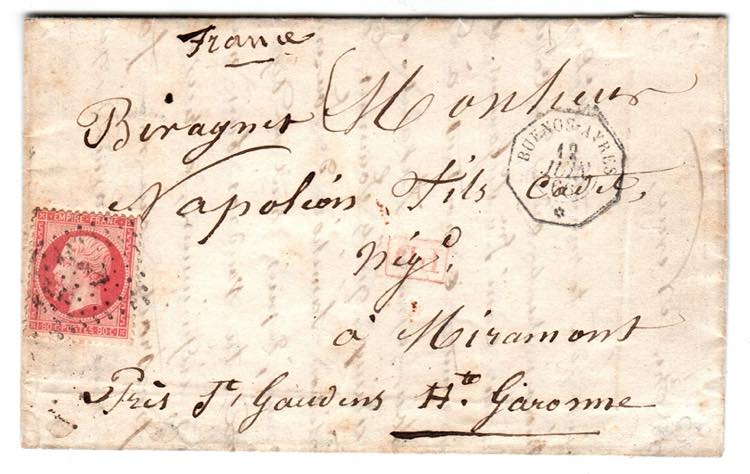 France
Monsieur
Biragnet
Napoléon Fils Cadet,
Nég.
à Miramont
Près St. Gaudens Hte. Garonne
BUENOS-AYRES
12
JUIN
EMPIRE FRANC
80 c POSTES 80 c